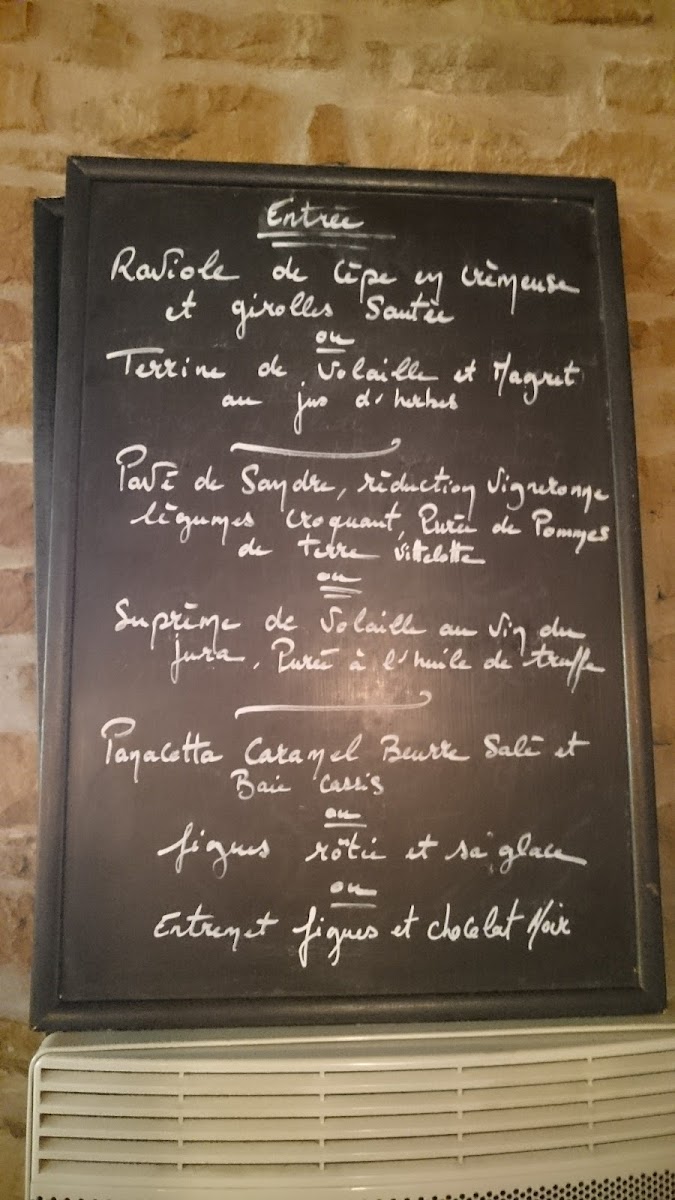 Entrée
Raviole de Cêpe en crèmeuse
et girolles Sautée
ou
Terrine de Volaille et Magret
au jus d'herbes
Pavé de Sandre, réduction Vigneronne
légumes Croquant, Purée de Pommes
de terre Vittelotte
ou
Suprême de Volaille au vin du
jura, Purée à l'huile de truffe
Panacotta Caramel Beurre Salé et
Baie Cassis
ou
figues rôtie et sa glace
ou
Entremet figues et chocolat Noir